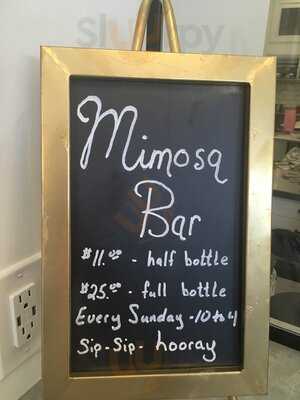 Mimosa
Bar
$11.00 - half bottle
$25.00 - full bottle
Every Sunday - 10 to 4
Sip-Sip- hooray